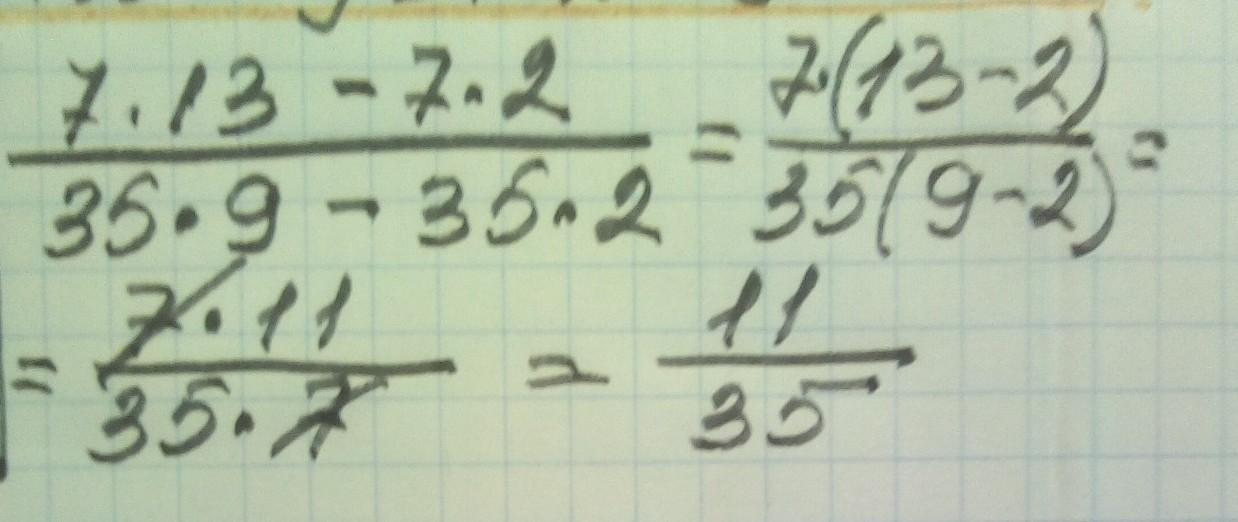 7·13 - 7·2
35·9 - 35·2
=
7·(13-2)
35(9-2)
=
=
7·11
35·7
=
11
35